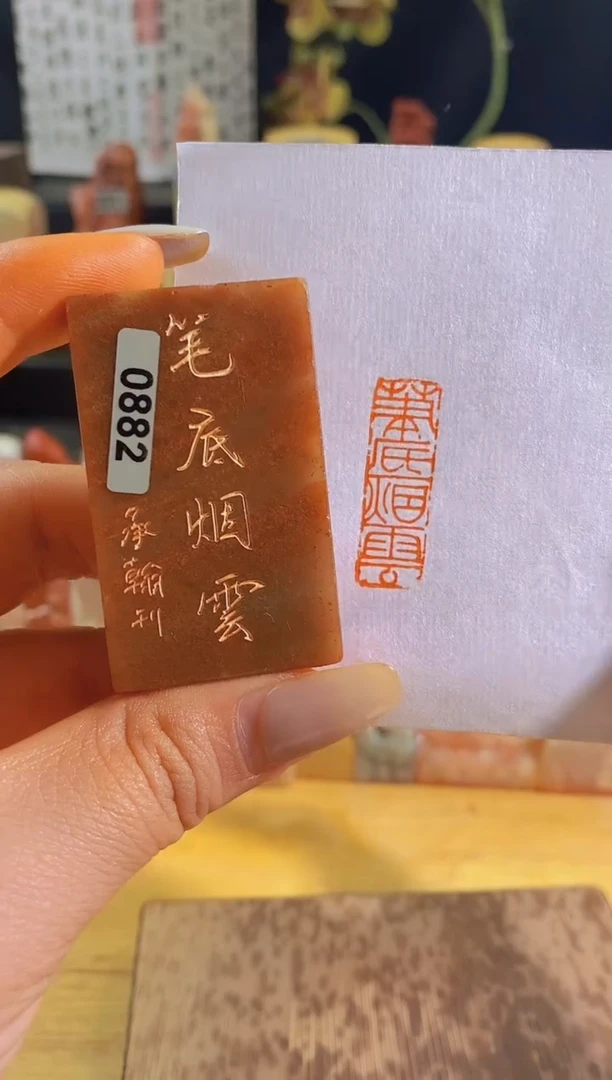 笔底烟雲
承翰刊
0882
筆底烟雲